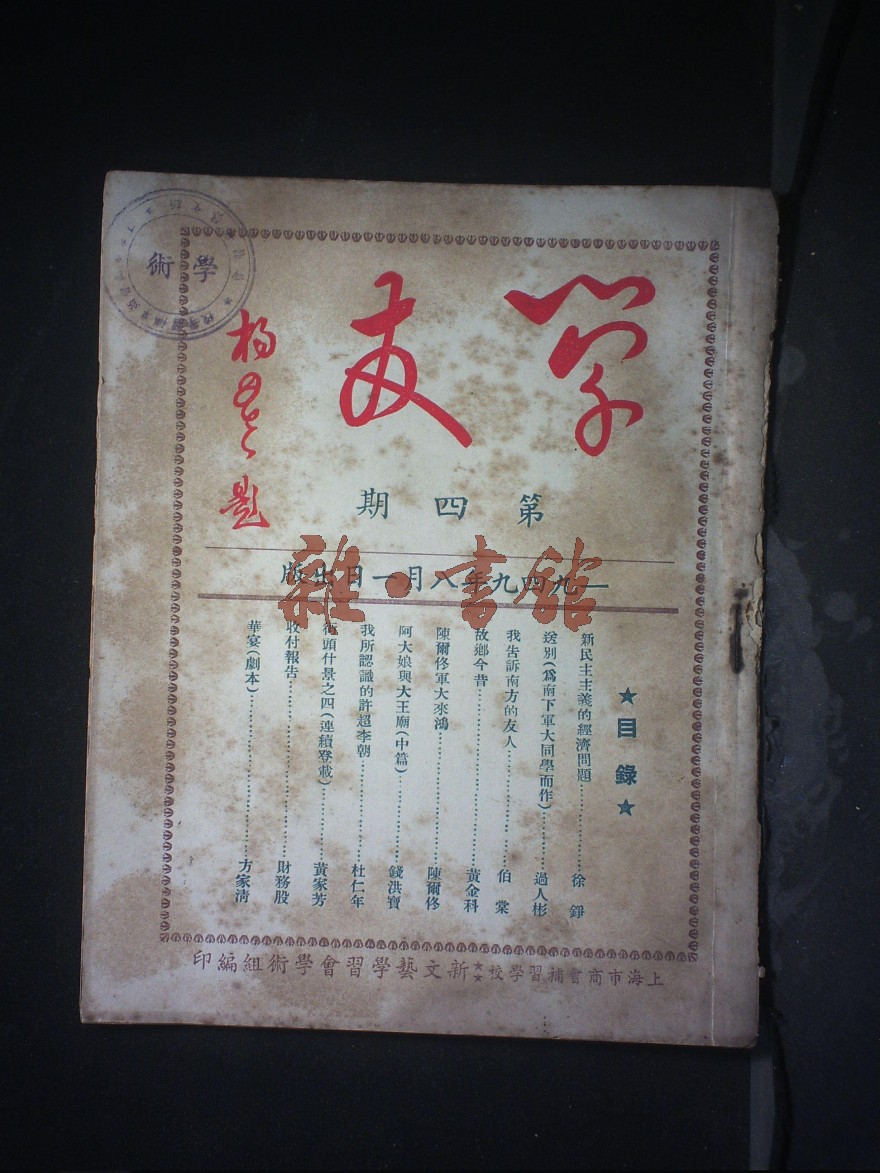 學友
第四期
一九四九年八月一日出版
雜·書館
★目錄★
新民主主義的經濟問題………徐錚
送別(爲南下軍大同學而作)………過人彬
我告訴南方的友人………伯棠
故鄉今昔………黃金科
陳爾佟軍大來鴻………陳爾佟
阿大娘與大王廟(中篇)………錢洪寶
我所認識的許超李朝………杜仁年
街頭什景之四(連續登載)………黃家芳
收付報告………財務股
華宴(劇本)………方家淸
上海市商書補習學校★★新文藝學習會學術組編印
學術
題